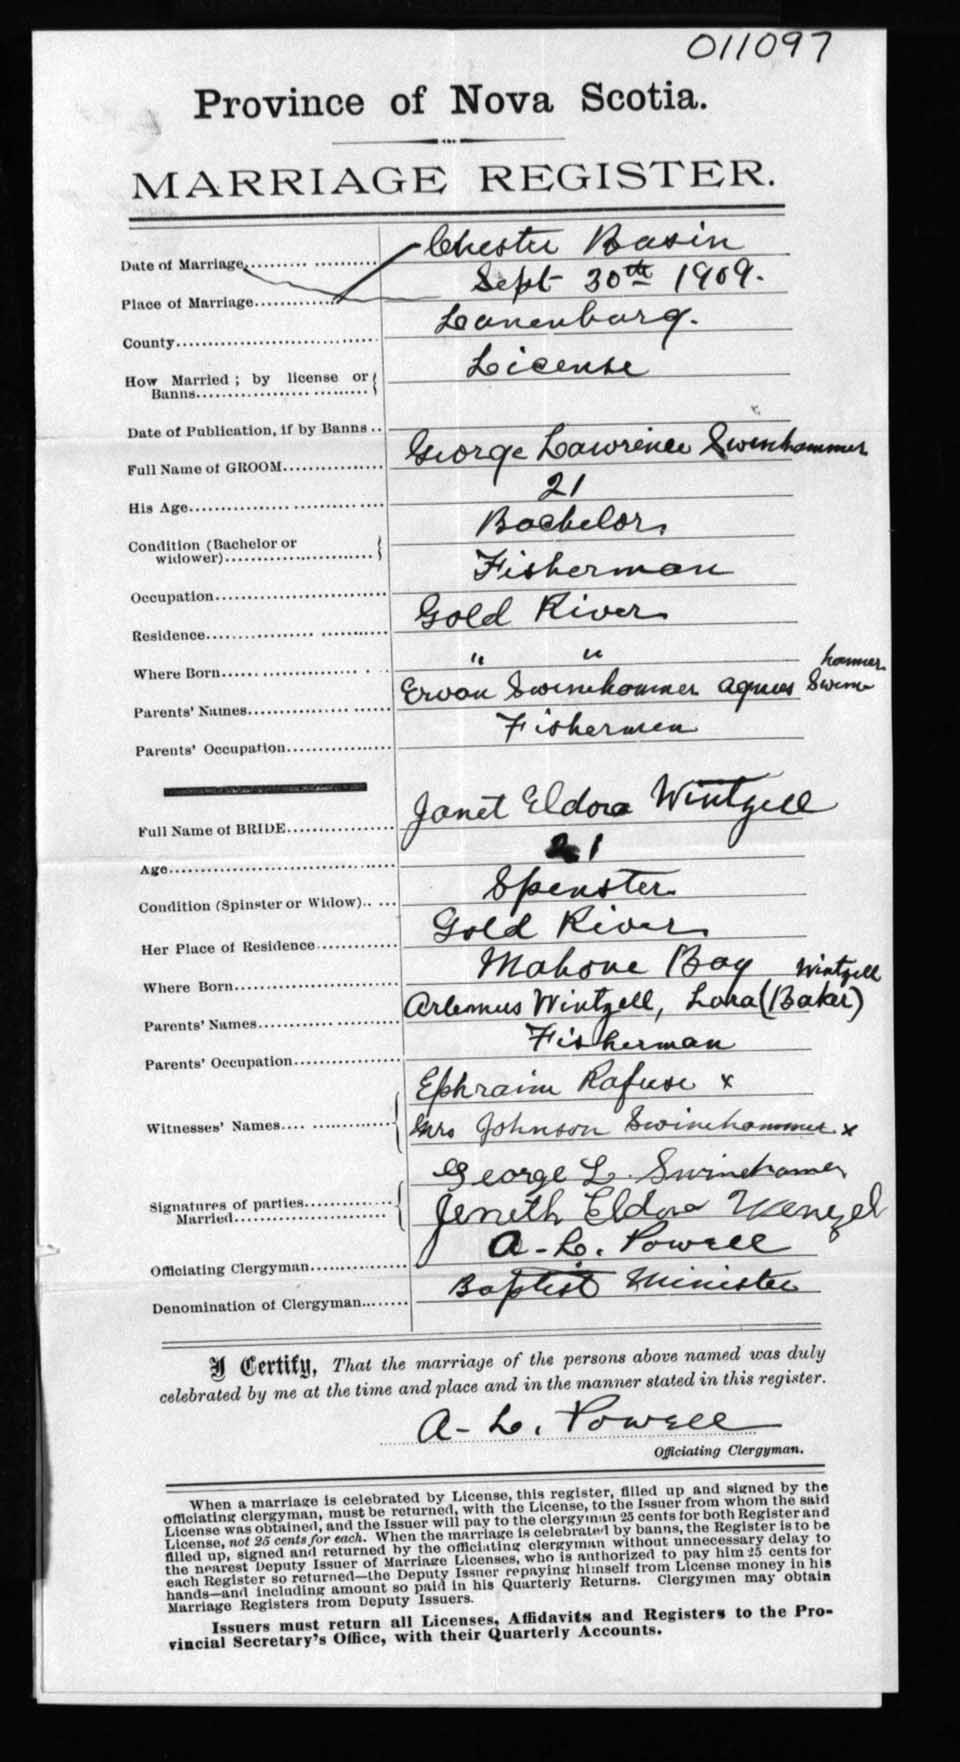 011097
Province of Nova Scotia.
MARRIAGE REGISTER.
Date of Marriage, Chester Basin
Place of Marriage Sept 30th 1909.
County Lunenburg.
How Married; by license or Banns License
Date of Publication, if by Banns
Full Name of GROOM George Lawrence Swinehammer
His Age 21
Condition (Bachelor or widower) Bachelor
Occupation Fisherman
Residence Gold River
Where Born " "
Parents' Names Ervan Swinehammer Agnes Swinehammer
Parents' Occupation Fishermen
Full Name of BRIDE Janet Eldora Wintzell
Age 21
Condition (Spinster or Widow) Spenster
Her Place of Residence Gold River
Where Born Mahone Bay
Parents' Names Artemus Wintzell, Lona (Baker) Wintzell
Parents' Occupation Fisherman
Witnesses' Names Ephraim Rafuse x
Mrs Johnson Swinehammer x
Signatures of parties Married George L. Swinehamer
Jeneth Eldora Wenzel
Officiating Clergyman A-L. Powell
Denomination of Clergyman Baptist Minister
I Certify, That the marriage of the persons above named was duly
celebrated by me at the time and place and in the manner stated in this register.
A-L. Powell
Officiating Clergyman.
When a marriage is celebrated by License, this register, filled up and signed by the
officiating clergyman, must be returned, with the License, to the Issuer from whom the said
License was obtained, and the Issuer will pay to the clergyman 25 cents for both Register and
License, not 25 cents for each. When the marriage is celebrated by banns, the Register is to be
filled up, signed and returned by the officiating clergyman without unnecessary delay to
the nearest Deputy Issuer of Marriage Licenses, who is authorized to pay him 25 cents for
each Register so returned—the Deputy Issuer repaying himself from License money in his
hands—and including amount so paid in his Quarterly Returns. Clergymen may obtain
Marriage Registers from Deputy Issuers.
Issuers must return all Licenses, Affidavits and Registers to the Pro-
vincial Secretary's Office, with their Quarterly Accounts.